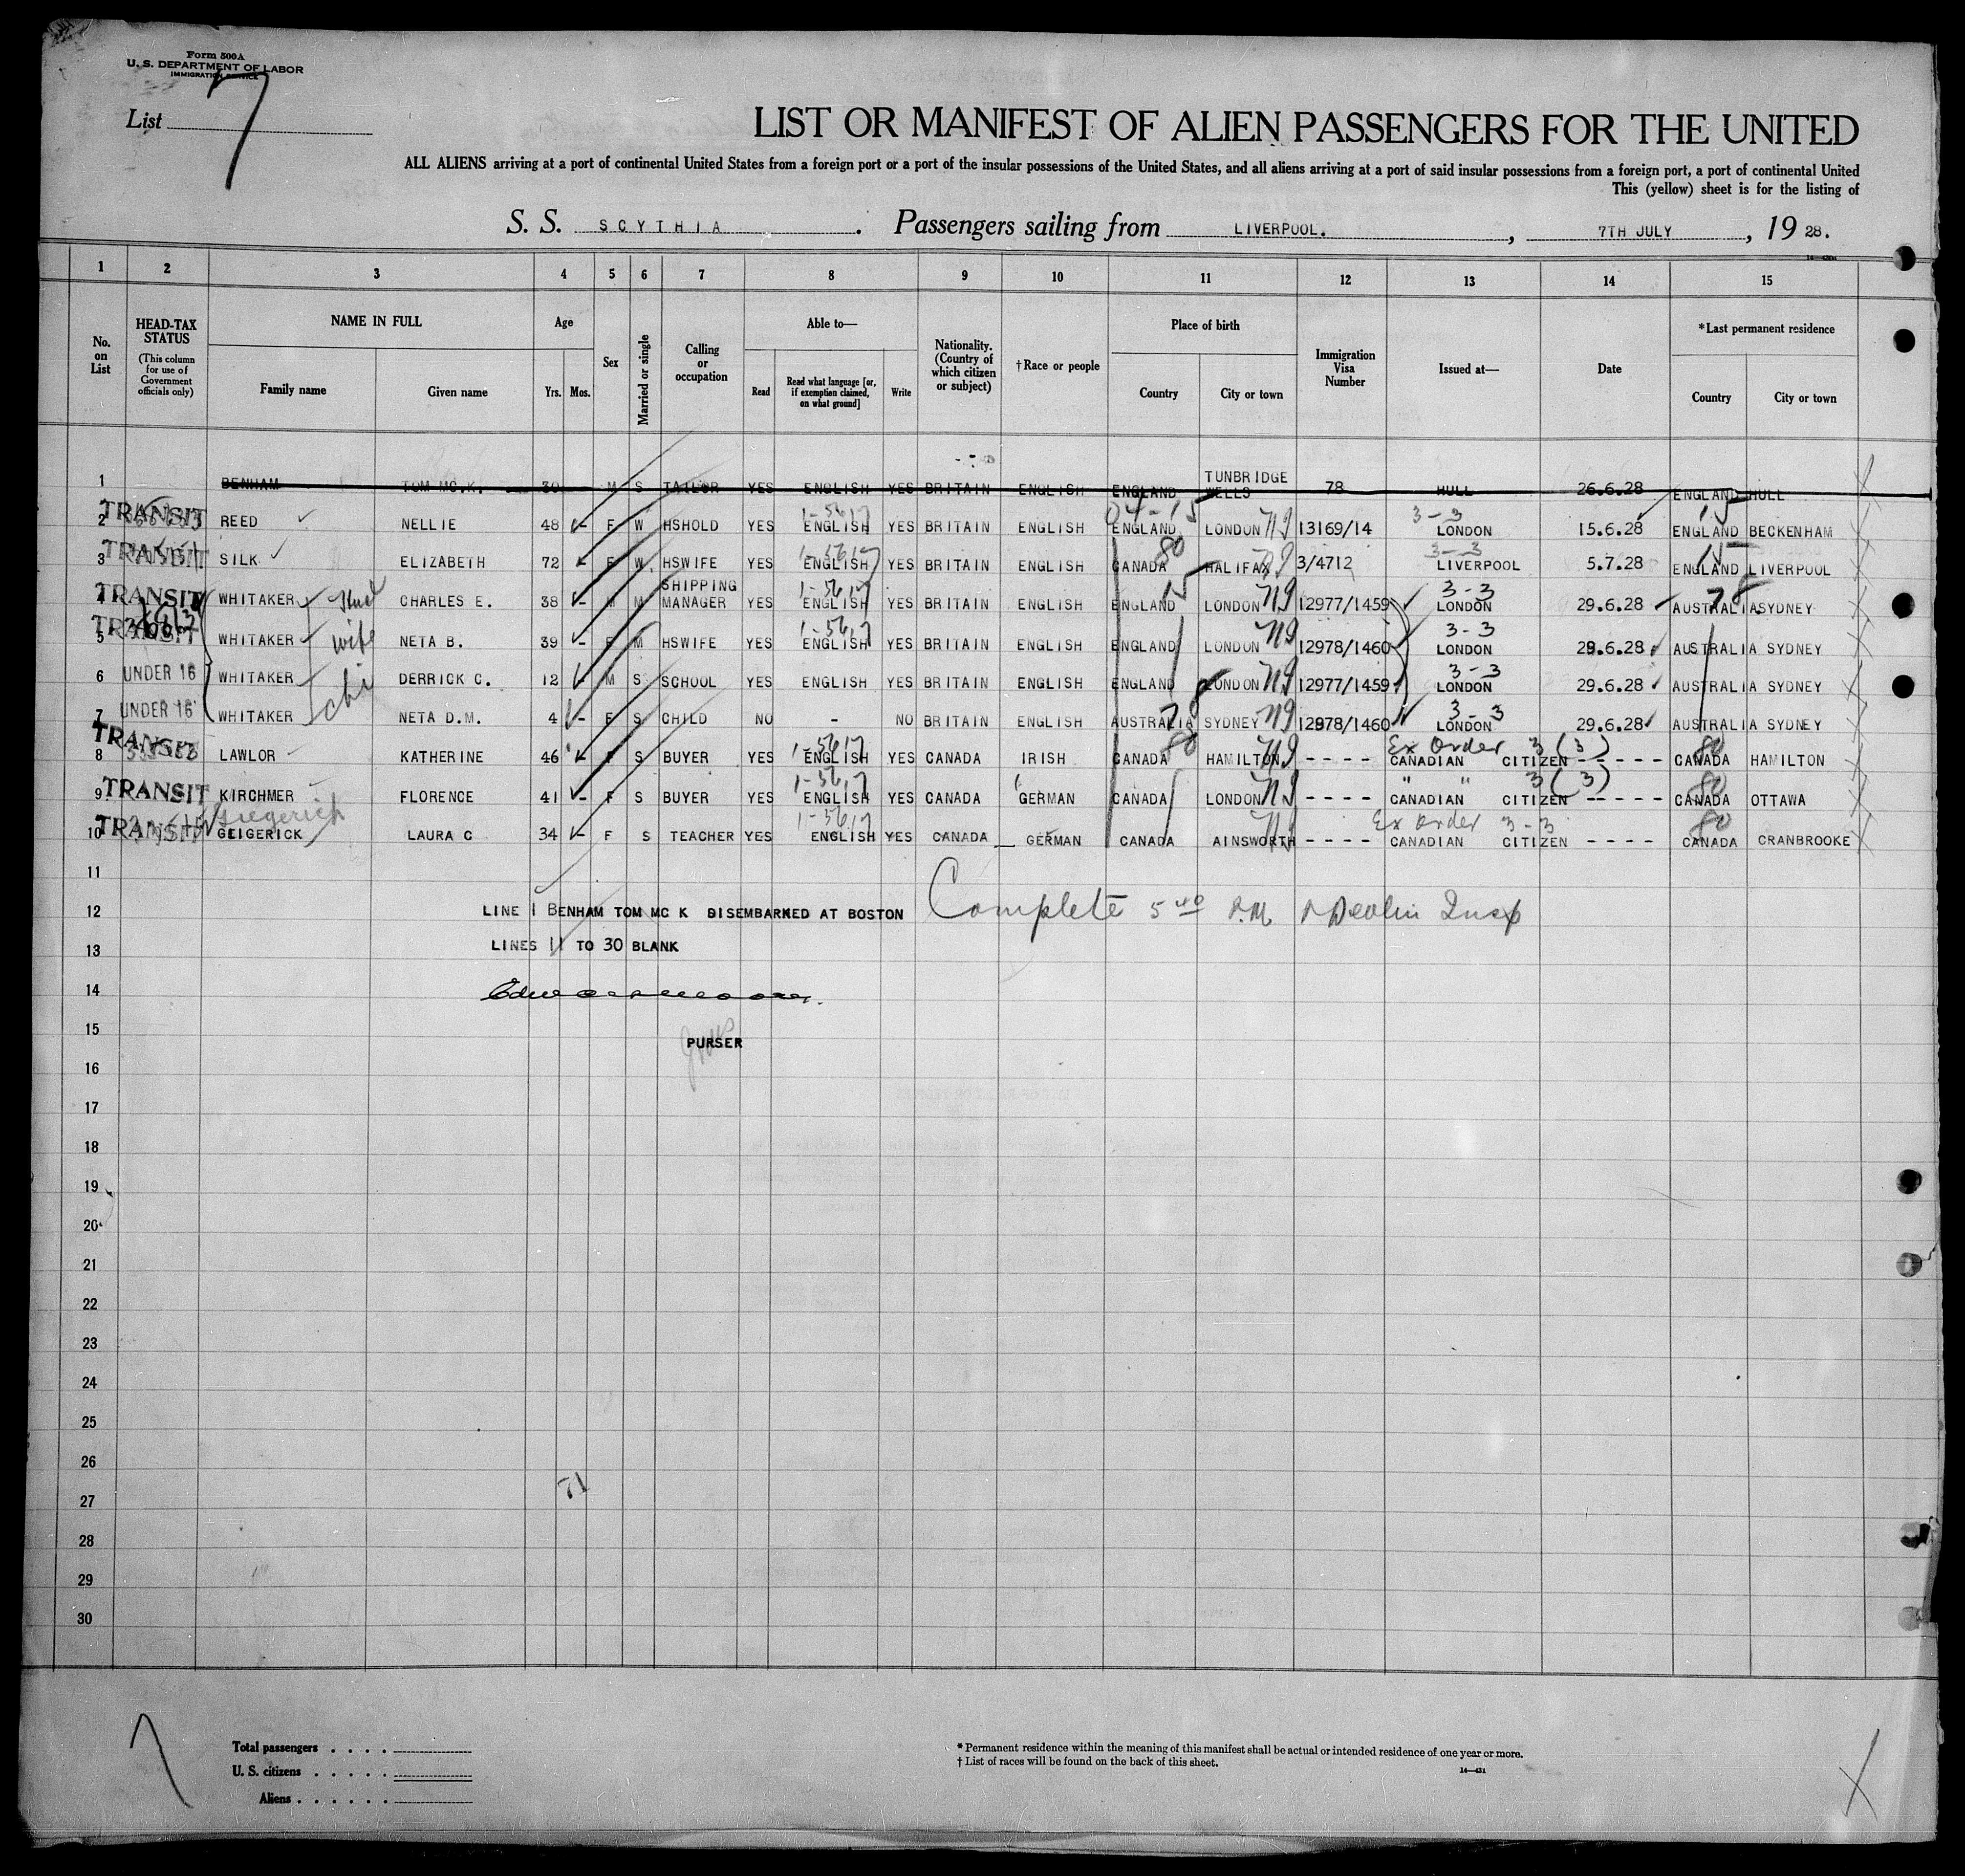 Form 500A
U. S. DEPARTMENT OF LABOR
IMMIGRATION SERVICE
List 7
LIST OR MANIFEST OF ALIEN PASSENGERS FOR THE UNITED
ALL ALIENS arriving at a port of continental United States from a foreign port or a port of the insular possessions of the United States, and all aliens arriving at a port of said insular possessions from a foreign port, a port of continental United
This (yellow) sheet is for the listing of
S. S. SCYTHIA. Passengers sailing from LIVERPOOL. , 7TH JULY , 19 28.
1 2 3 4 5 6 7 8 9 10 11 12 13 14 15
No. on List
HEAD-TAX STATUS
(This column for use of Government officials only)
NAME IN FULL
Family name
Given name
Age
Yrs. Mos.
Sex
Married or single
Calling or occupation
Able to—
Read
Read what language [or, if exemption claimed, on what ground]
Write
Nationality. (Country of which citizen or subject)
†Race or people
Place of birth
Country
City or town
Immigration Visa Number
Issued at—
Date
*Last permanent residence
Country
City or town
1 BENHAM TOM MC.K. 30 M S TAILOR YES ENGLISH YES BRITAIN ENGLISH ENGLAND TUNBRIDGE WELLS 78 HULL 26.6.28 ENGLAND HULL
2 TRANSIT REED NELLIE 48 - F W HSHOLD YES ENGLISH YES BRITAIN ENGLISH ENGLAND LONDON 13169/14 3-3 LONDON 15.6.28 15 ENGLAND BECKENHAM
3 TRANSIT SILK ELIZABETH 72 - F W. HSWIFE YES ENGLISH YES BRITAIN ENGLISH CANADA 80 HALIFAX 3/4712 3-3 LIVERPOOL 5.7.28 15 ENGLAND LIVERPOOL
4 TRANSIT WHITAKER CHARLES E. 38 - M M SHIPPING MANAGER YES ENGLISH YES BRITAIN ENGLISH ENGLAND 15 LONDON 12977/1459 3-3 LONDON 29.6.28 78 AUSTRALIA SYDNEY
5 TRANSIT WHITAKER wife NETA B. 39 - F M HSWIFE YES ENGLISH YES BRITAIN ENGLISH ENGLAND LONDON 12978/1460 3-3 LONDON 29.6.28 AUSTRALIA SYDNEY
6 UNDER 16 WHITAKER DERRICK C. 12 - M S SCHOOL YES ENGLISH YES BRITAIN ENGLISH ENGLAND LONDON 12977/1459 3-3 LONDON 29.6.28 AUSTRALIA SYDNEY
7 UNDER 16 WHITAKER chi NETA D.M. 4 - F S CHILD NO - NO BRITAIN ENGLISH AUSTRALIA 78 SYDNEY 12978/1460 3-3 LONDON 29.6.28 AUSTRALIA SYDNEY
8 TRANSIT LAWLOR KATHERINE 46 - F S BUYER YES ENGLISH YES CANADA IRISH CANADA 80 HAMILTON - - - - Ex Order 3(3) CANADIAN CITIZEN - - - - - 80 CANADA HAMILTON
9 TRANSIT KIRCHMER FLORENCE 41 - F S BUYER YES ENGLISH YES CANADA GERMAN CANADA LONDON - - - - " " 3(3) CANADIAN CITIZEN - - - - - 80 CANADA OTTAWA
10 TRANSIT GEIGERICK Giegerich LAURA C 34 - F S TEACHER YES ENGLISH YES CANADA GERMAN CANADA AINSWORTH - - - - Ex Order 3-3 CANADIAN CITIZEN - - - - 80 CANADA CRANBROOKE
11
12 LINE 1 BENHAM TOM MC K DISEMBARKED AT BOSTON Complete 5 40 P.M. Insp
13 LINES 11 TO 30 BLANK
14
15 PURSER
16
17
18
19
20
21
22
23
24
25
26
71
27
28
29
30
Total passengers . . . .
U. S. citizens . . . . .
Aliens . . . . . .
* Permanent residence within the meaning of this manifest shall be actual or intended residence of one year or more.
† List of races will be found on the back of this sheet.
14—431